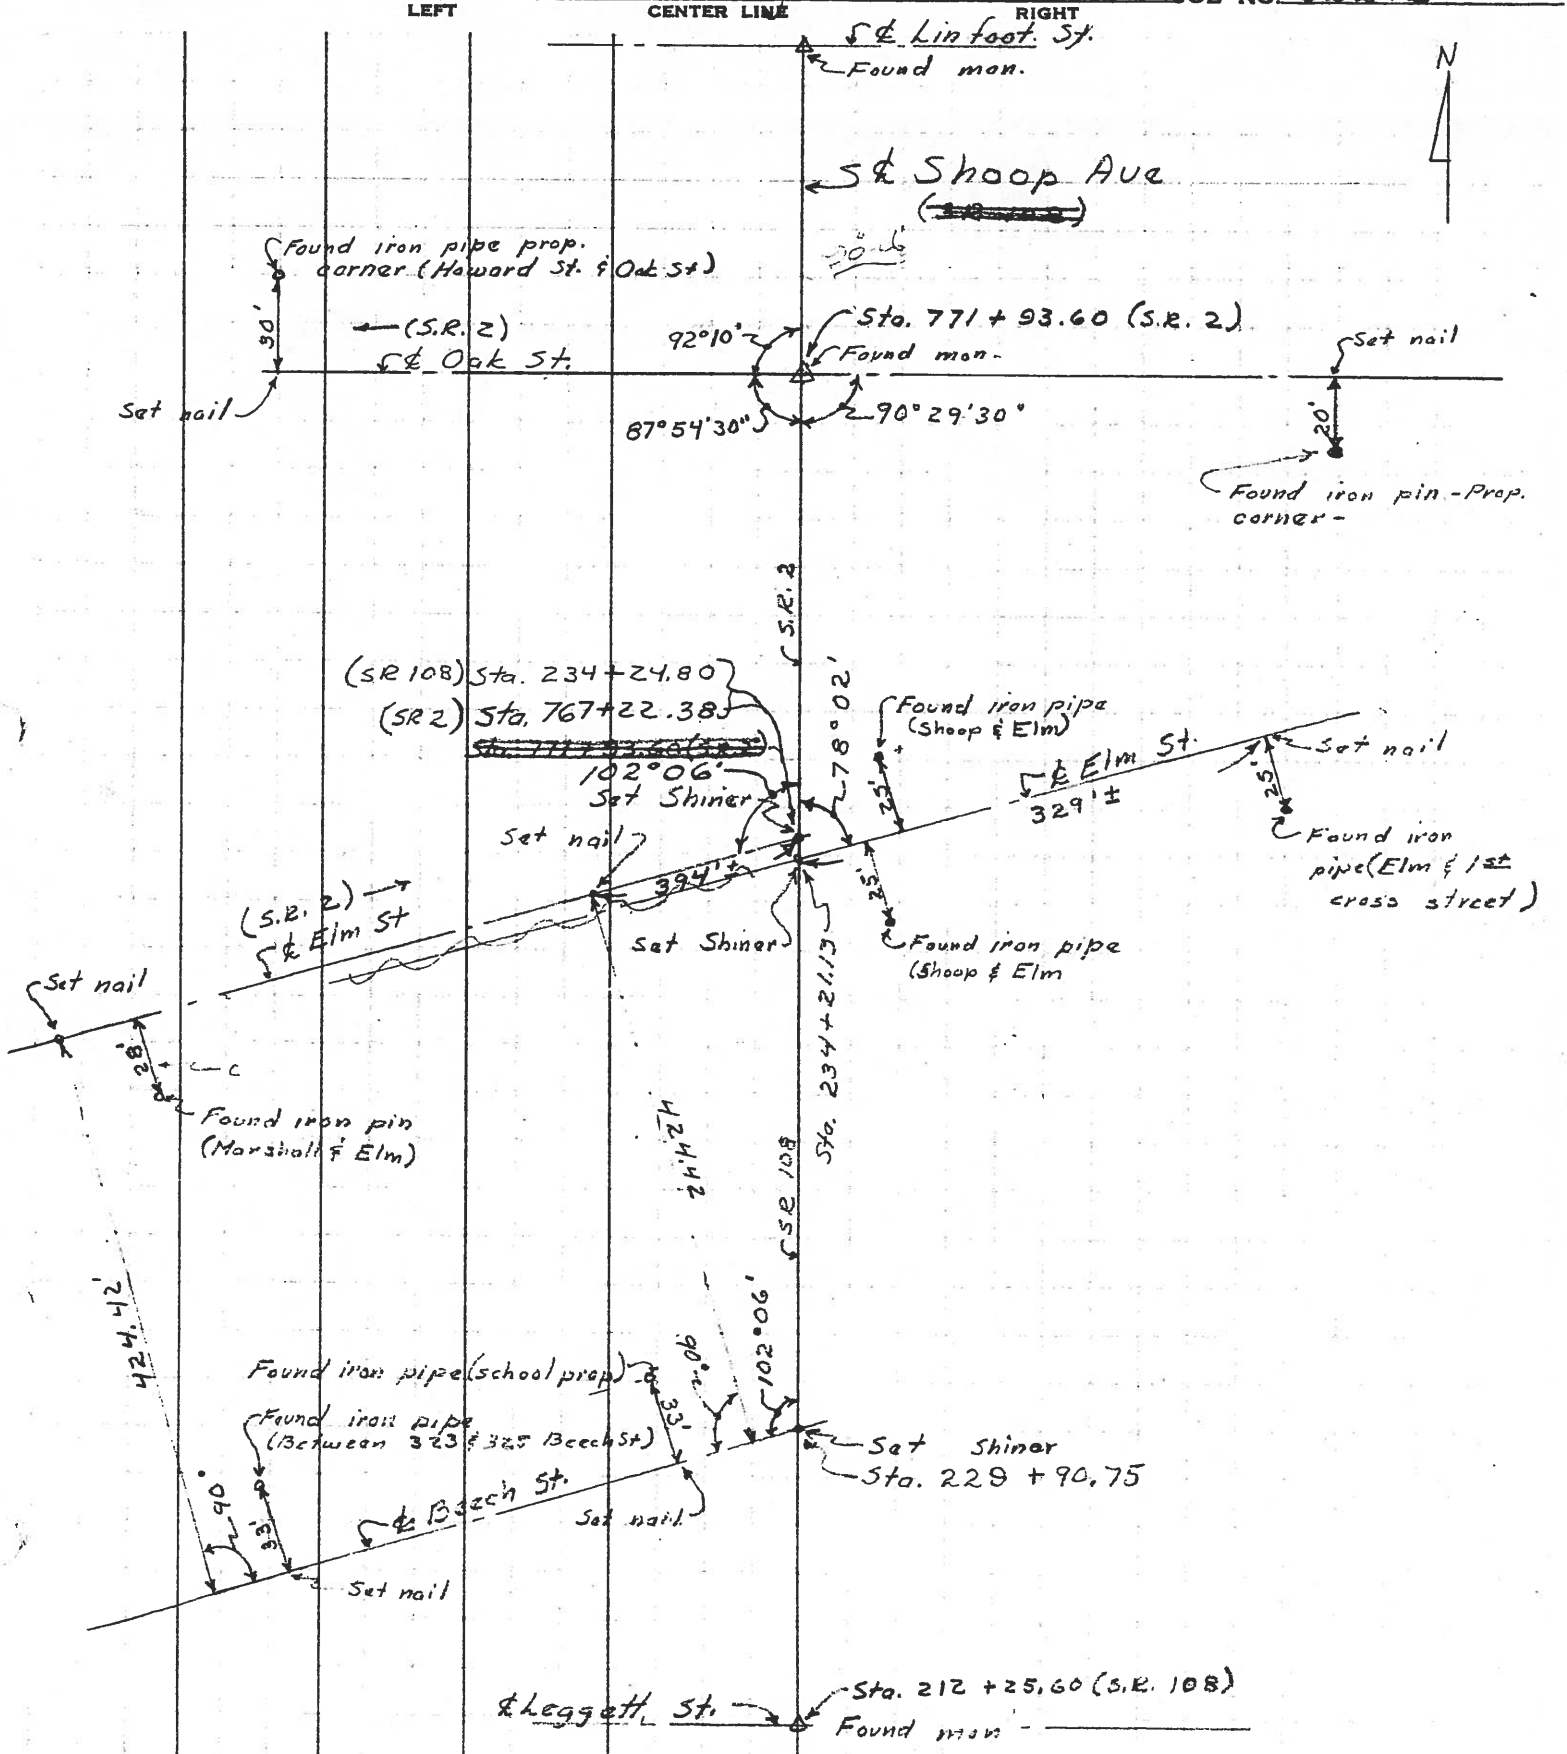 LEFT CENTER LINE RIGHT
℄ Linfoot. St.
Found mon.
N
℄ Shoop Ave
Found iron pipe prop.
corner (Howard St. & Oak St)
30'
(S.R. 2)
℄ Oak St.
Set nail
92°10'
Sta. 771 + 93.60 (S.R. 2)
Found mon.
87°54'30"
90°29'30"
Set nail
20'
Found iron pin - Prop.
corner -
S.R. 2
(SR 108) Sta. 234+24.80
(SR 2) Sta. 767+22.38
Sta. 771+93.60 (S.R. 2)
102°06'
Set Shiner
78°02'
Found iron pipe
(Shoop & Elm)
25'
℄ Elm St.
329'±
Set nail
25'
Found iron
pipe (Elm & 1st
cross street)
Set nail
394'±
(S.R. 2)
℄ Elm St
Set Shiner
25'
Found iron pipe
(Shoop & Elm
Sta. 234+21.13
Set nail
28'
C
Found iron pin
(Marshall & Elm)
424.42
SR 108
424.42'
102°06'
90°
Found iron pipe (school prop)
33'
Found iron pipe
(Between 323 & 325 Beech St)
Set Shiner
Sta. 229 + 90.75
90°
33'
℄ Beech St.
Set nail
Set nail
℄ Leggett St.
Sta. 212 + 25.60 (S.R. 108)
Found mon -